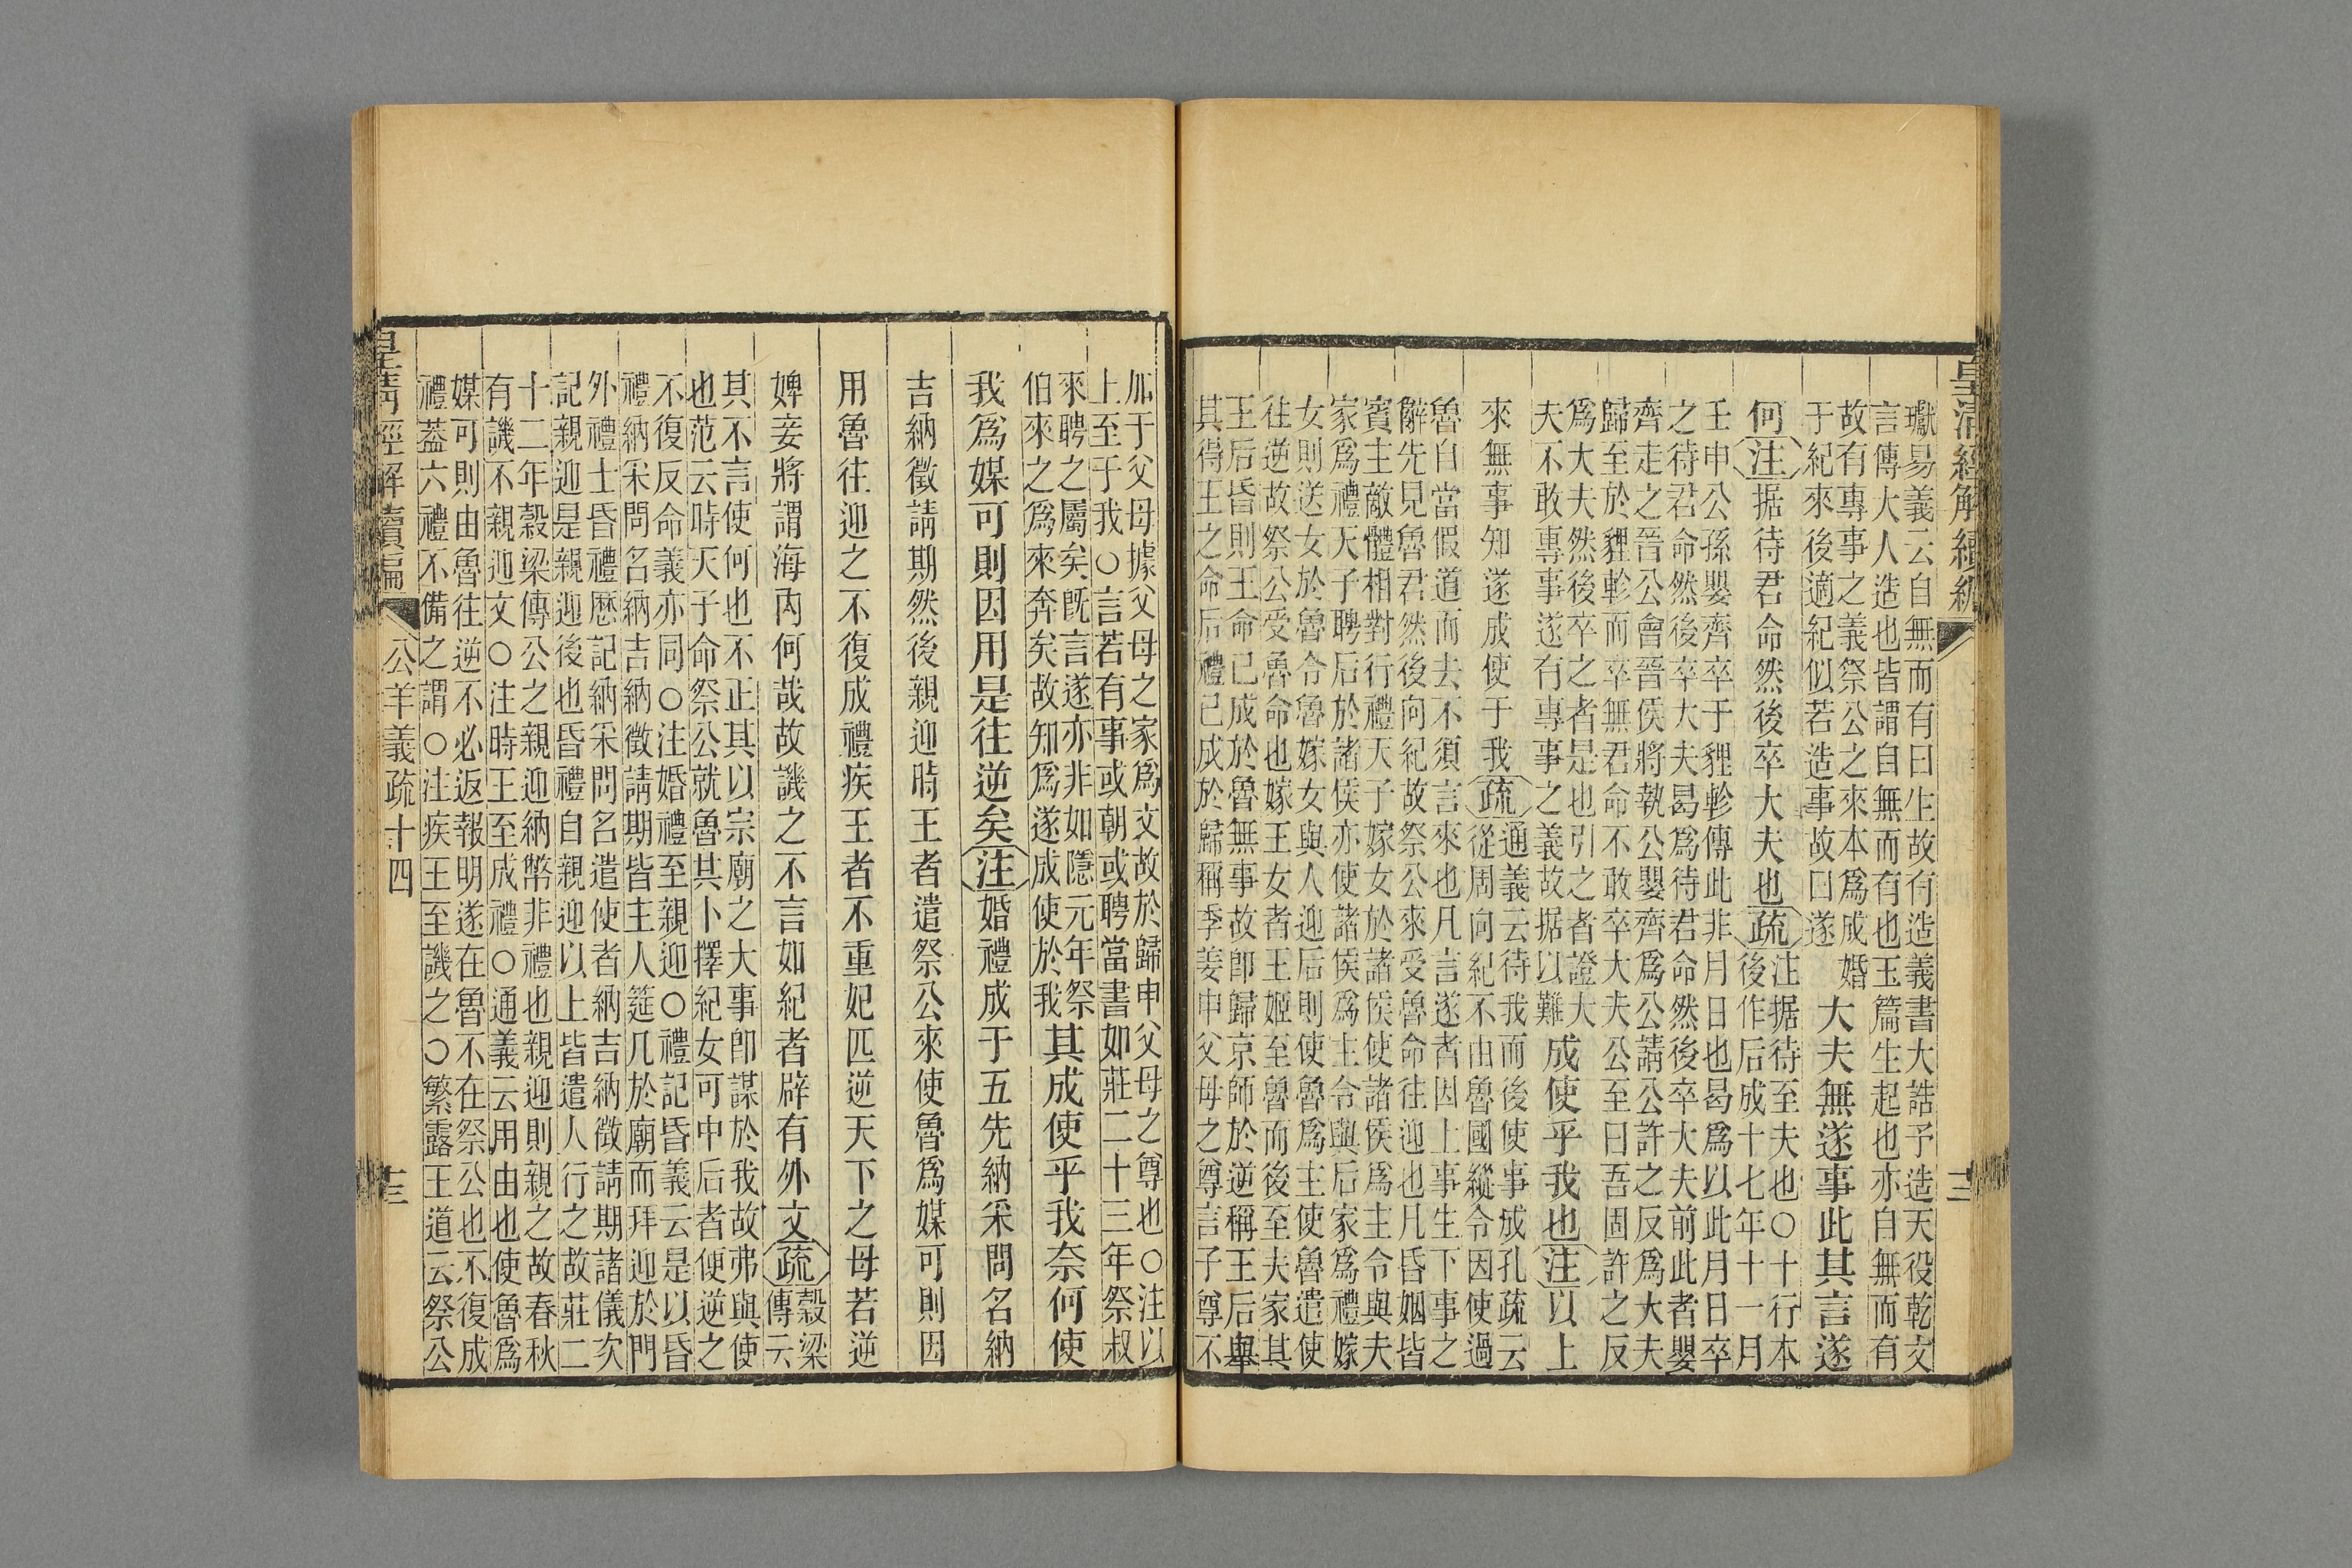 皇清經解續編
瓛易義云自無而有曰生故有造義書大誥予造天役乾文
言傳大人造也皆謂自無而有也玉篇生起也亦自無而有
故有專事之義祭公之來本爲成婚
于紀來後適紀似若造事故曰遂
大夫無遂事此其言遂
何注据待君命然後卒大夫也疏
注据待至夫也○十行本
後作后成十七年十一月
壬申公孫嬰齊卒于貍軫傳此非月日也曷爲以此月日卒
之待君命然後卒大夫曷爲待君命然後卒大夫前此者嬰
齊走之晉公會晉侯將執公嬰齊爲公請公許之反爲大夫
歸至於貍軫而卒無君命不敢卒大夫公至曰吾固許之反
爲大夫然後卒之者是也引之者證大
夫不敢專事遂有專事之義故据以難
成使乎我也注以上
來無事知遂成使于我疏
通義云待我而後使事成孔疏云
從周向紀不由魯國縱令因使過
魯自當假道而去不須言來也凡言遂者因上事生下事之
辭先見魯君然後向紀故祭公來受魯命往迎也凡昏姻皆
賓主敵體相對行禮天子嫁女於諸侯使諸侯爲主令與夫
家爲禮天子聘后於諸侯亦使諸侯爲主令與后家爲禮嫁
女則送女於魯令魯嫁女與人迎后則使魯爲主使魯遣使
往逆故祭公受魯命也嫁王女者王姬至魯而後至夫家其
王后昏則王命已成於魯無事故卽歸京師於逆稱王后舉
其得王之命后禮已成於歸稱季姜申父母之尊言子尊不
加于父母據父母之家爲文故於歸申父母之尊也○注以
上至于我○言若有事或朝或聘當書如莊二十三年祭叔
來聘之屬矣旣言遂亦非如隱元年祭
伯來之爲來奔矣故知爲遂成使於我
其成使乎我奈何使
我爲媒可則因用是往逆矣注婚禮成于五先納采問名納
吉納徵請期然後親迎時王者遣祭公來使魯爲媒可則因
用魯往迎之不復成禮疾王者不重妃匹逆天下之母若逆
婢妾將謂海內何哉故譏之不言如紀者辟有外文疏
穀梁
傳云
其不言使何也不正其以宗廟之大事卽謀於我故弗與使
也范云時天子命祭公就魯其卜擇紀女可中后者便逆之
不復反命義亦同○注婚禮至親迎○禮記昏義云是以昏
禮納采問名納吉納徵請期皆主人筵几於廟而拜迎於門
外禮士昏禮歷記納采問名遣使者納吉納徵請期諸儀次
記親迎是親迎後也昏禮自親迎以上皆遣人行之故莊二
十二年穀梁傳公之親迎納幣非禮也親迎則親之故春秋
有譏不親迎文○注時王至成禮○通義云用由也使魯爲
媒可則由魯往逆不必返報明遂在魯不在祭公也不復成
禮蓋六禮不備之謂○注疾王至譏之○繁露王道云祭公
皇清經解續編
公羊義疏十四
十三